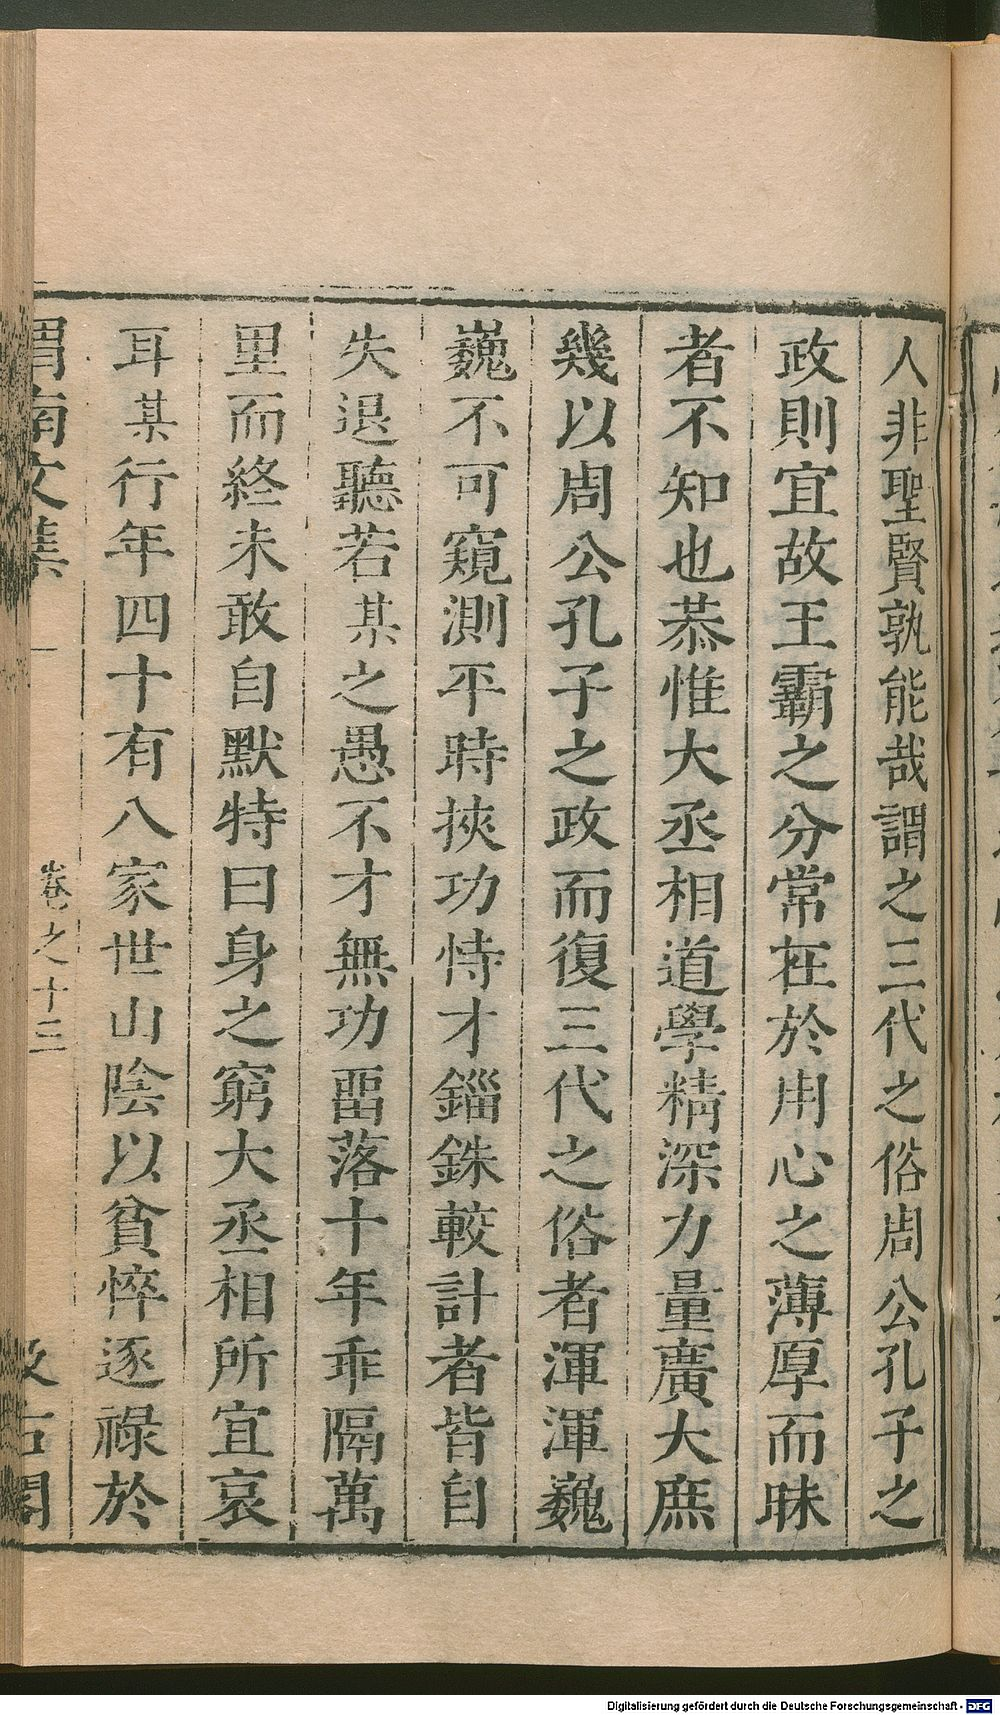 人非聖賢孰能哉謂之三代之俗周公孔子之
政則宜故王霸之分常在於用心之薄厚而昧
者不知也恭惟大丞相道學精深力量廣大庶
幾以周公孔子之政而復三代之俗者渾渾巍
巍不可窺測平時挾功恃才錙銖較計者皆自
失退聽若某之愚不才無功畱落十年乖隔萬
里而終未敢自默特曰身之窮大丞相所宜哀
耳某行年四十有八家世山陰以貧悴逐祿於
渭南文集
卷之十三
汲古閣
Digitalisierung gefördert durch die Deutsche Forschungsgemeinschaft - DFG